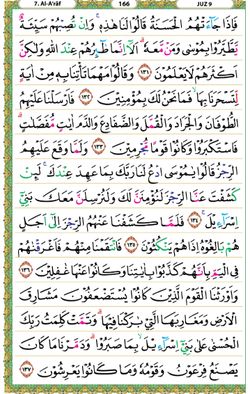 7. Al-A'râf 166 JUZ 9
فَإِذَا جَآءَتْهُمُ الْحَسَنَةُ قَالُوا لَنَا هٰذِهٖ ۚ وَإِنْ تُصِبْهُمْ سَيِّئَةٌ
يَطَّيَّرُوا بِمُوسَىٰ وَمَنْ مَعَهُ ۗ أَلَآ إِنَّمَا طَآئِرُهُمْ عِنْدَ اللَّهِ وَلٰكِنَّ
أَكْثَرَهُمْ لَا يَعْلَمُونَ ﴿١٣١﴾ وَقَالُوا مَهْمَا تَأْتِنَا بِهٖ مِنْ آيَةٍ
لِتَسْحَرَنَا بِهَا ۙ فَمَا نَحْنُ لَكَ بِمُؤْمِنِينَ ﴿١٣٢﴾ فَأَرْسَلْنَا عَلَيْهِمُ
الطُّوفَانَ وَالْجَرَادَ وَالْقُمَّلَ وَالضَّفَادِعَ وَالدَّمَ آيَاتٍ مُفَصَّلَاتٍ
فَاسْتَكْبَرُوا وَكَانُوا قَوْمًا مُجْرِمِينَ ﴿١٣٣﴾ وَلَمَّا وَقَعَ عَلَيْهِمُ
الرِّجْزُ قَالُوا يَا مُوسَى ادْعُ لَنَا رَبَّكَ بِمَا عَهِدَ عِنْدَكَ ۖ لَئِنْ
كَشَفْتَ عَنَّا الرِّجْزَ لَنُؤْمِنَنَّ لَكَ وَلَنُرْسِلَنَّ مَعَكَ بَنِيٓ
إِسْرَآئِيلَ ﴿١٣٤﴾ فَلَمَّا كَشَفْنَا عَنْهُمُ الرِّجْزَ إِلَىٰٓ أَجَلٍ
هُمْ بَالِغُوهُ إِذَا هُمْ يَنْكُثُونَ ﴿١٣٥﴾ فَانْتَقَمْنَا مِنْهُمْ فَأَغْرَقْنَاهُمْ
فِي الْيَمِّ بِأَنَّهُمْ كَذَّبُوا بِآيَاتِنَا وَكَانُوا عَنْهَا غَافِلِينَ ﴿١٣٦﴾
وَأَوْرَثْنَا الْقَوْمَ الَّذِينَ كَانُوا يُسْتَضْعَفُونَ مَشَارِقَ
الْأَرْضِ وَمَغَارِبَهَا الَّتِي بَارَكْنَا فِيهَا ۖ وَتَمَّتْ كَلِمَتُ رَبِّكَ
الْحُسْنَىٰ عَلَىٰ بَنِيٓ إِسْرَآئِيلَ بِمَا صَبَرُوا ۖ وَدَمَّرْنَا مَا كَانَ
يَصْنَعُ فِرْعَوْنُ وَقَوْمُهُ وَمَا كَانُوا يَعْرِشُونَ ﴿١٣٧﴾